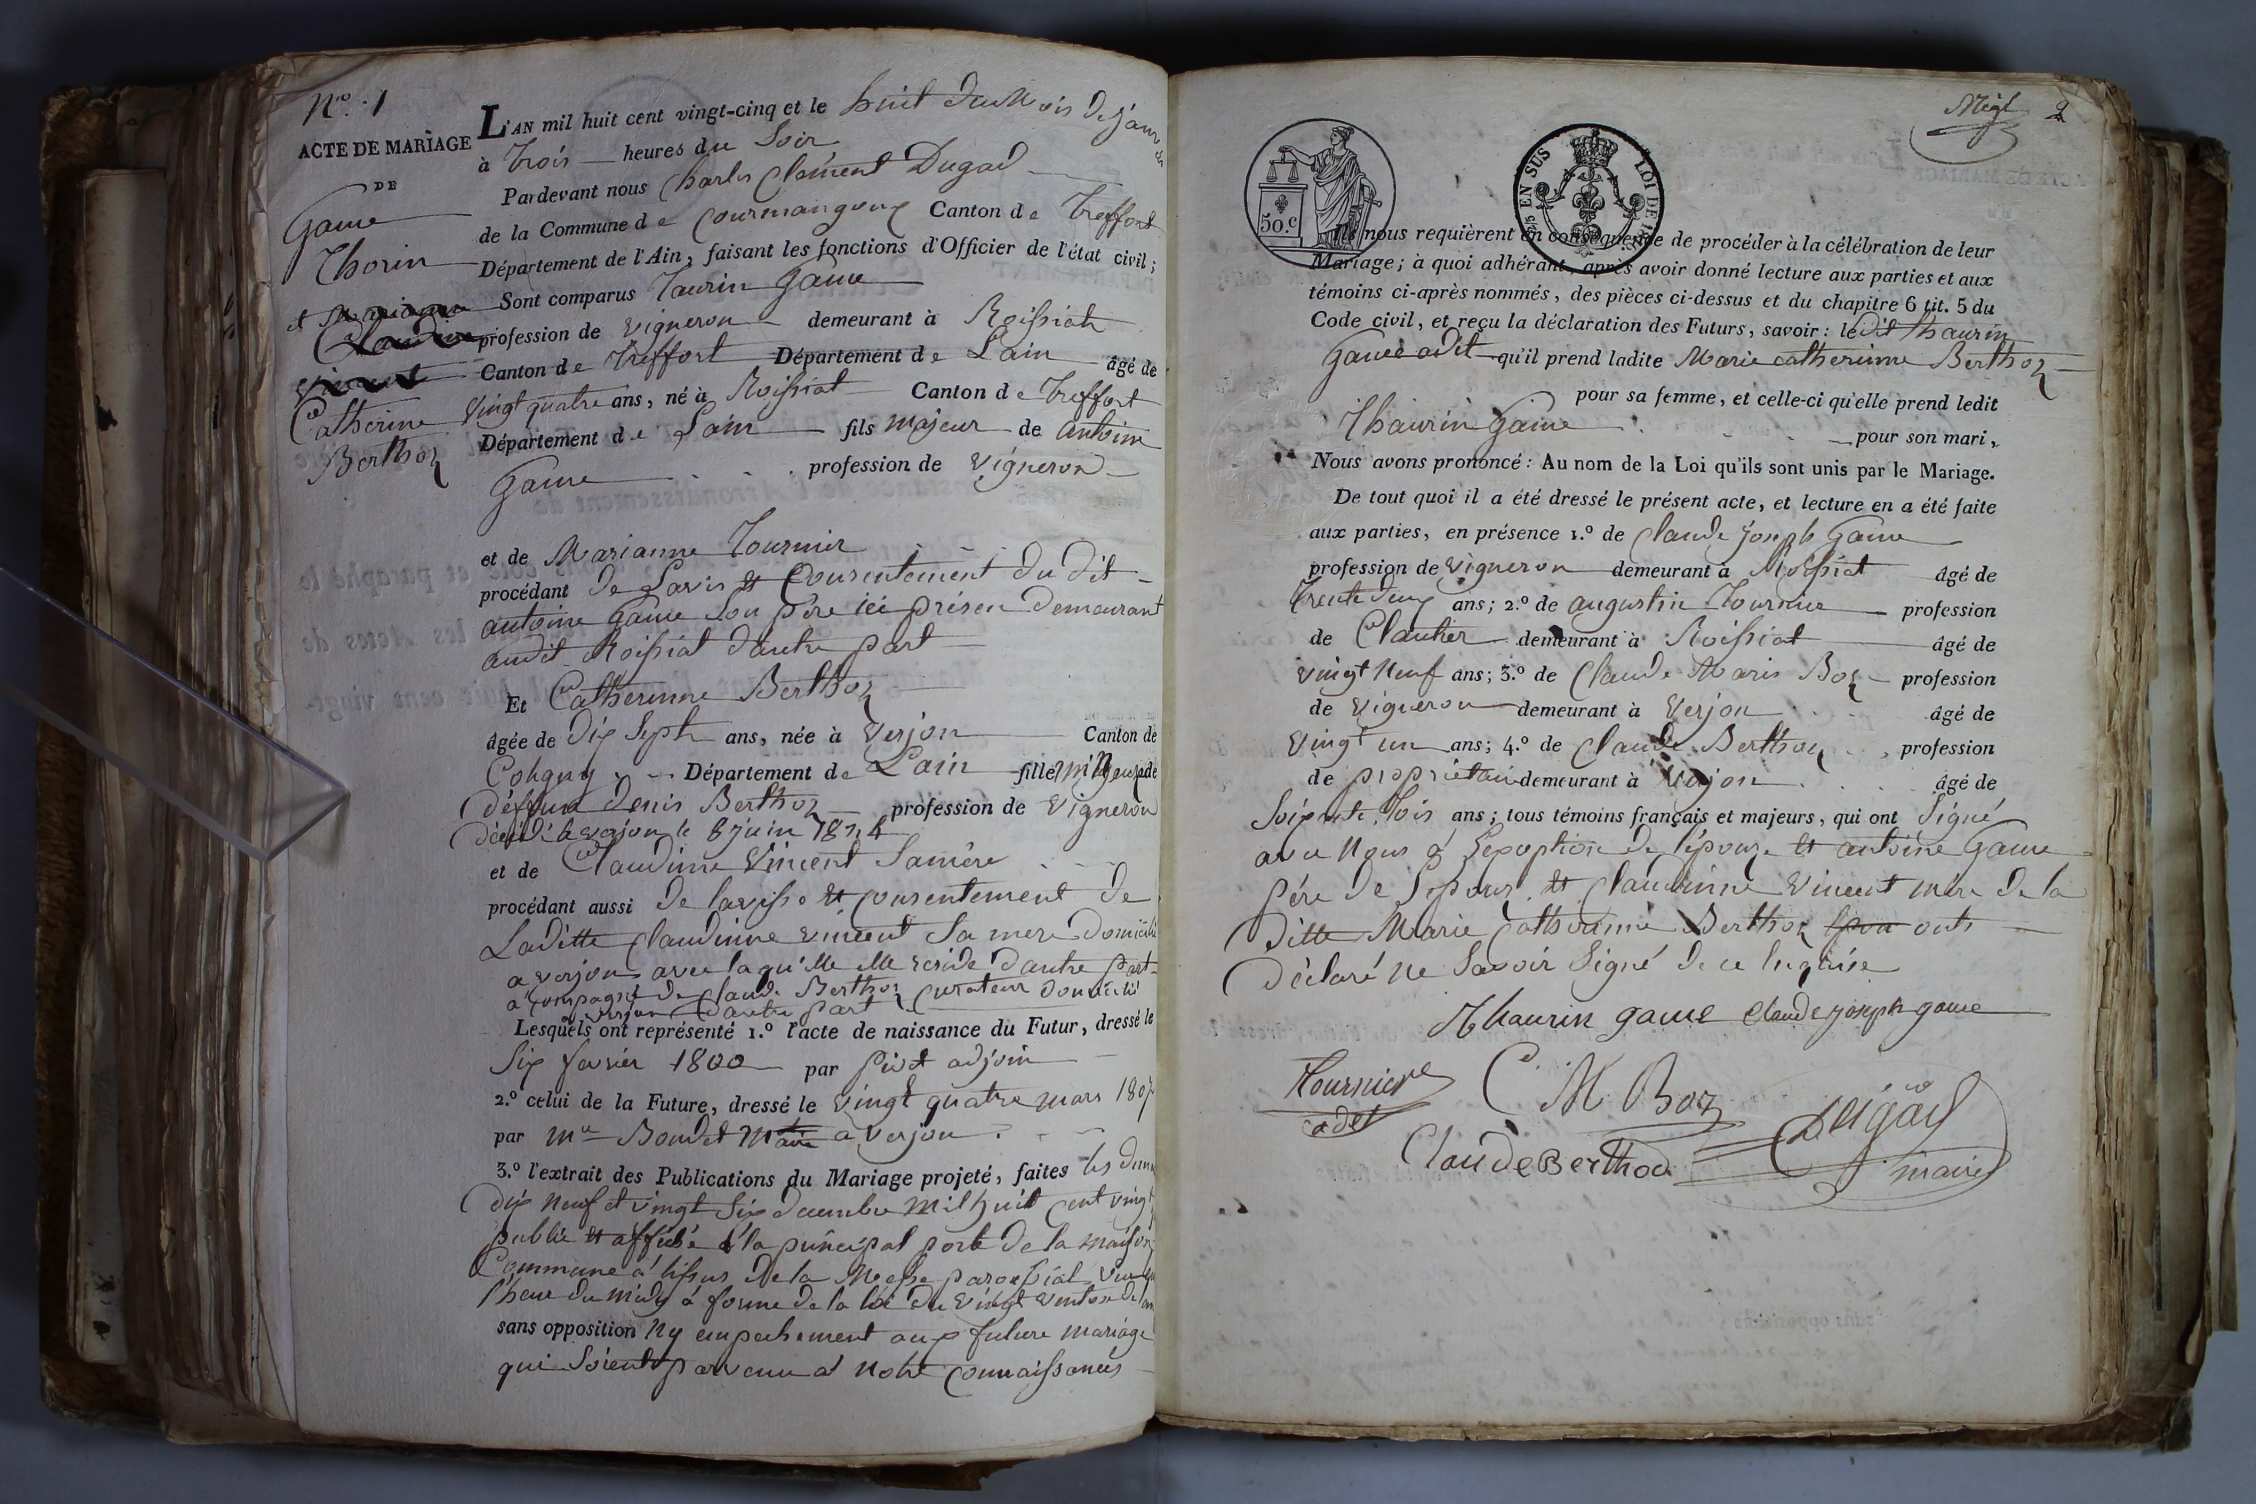 Nro. 1
ACTE DE MARIAGE
DE
Gaume
Thorin
et Marianne
Claudine
Vincent
Catherine
Berthoz
L'AN mil huit cent vingt-cinq et le huit du Mois de janvier
à trois heures du Soir
Pardevant nous Charles Clément Dugad
de la Commune de Courmangoux Canton de Treffort
Département de l'Ain, faisant les fonctions d'Officier de l'état civil;
Sont comparus Taurin Gaume
profession de Vigneron demeurant à Roissiat
Canton de Treffort Département de Lain âgé de
Vingt quatre ans, né à Roissiat Canton de Treffort
Département de Lain fils majeur de antoine
Gaume profession de Vigneron
et de Marianne Tournier
procédant de Lavis et Consentement du dit
antoine Gaume Son père ici présen demeurant
audit Roissiat dautre part
Et Catherinne Berthoz
âgée de Dix Sept ans, née à Verjon Canton de
Coligny Département de Lain fille mineure de
déffunt denis Berthoz profession de Vigneron
Décédé à verjon le 8 juin 1814
et de Claudinne Vincent Samère
procédant aussi de lavisse et consentement de
Laditte Claudinne Vincent Sa mere Domicilié
a verjon avec laqu'elle elle reside dautre part
acompagné de Claude Berthoz Curateur domicilié
a verjon dautre part
Lesquels ont représenté 1.º l'acte de naissance du Futur, dressé le
Six fevrier 1800 par pivet adjoin
2.º celui de la Future, dressé le Vingt quatre mars 1807
par Mr Boudet Maire a verjon
3.º l'extrait des Publications du Mariage projeté, faites les
dix neuf et vingt Six decembre mil huit cent vingt
publié et affiché à la principal porte de la maison
Commune a lissus de la Messe paroissial
l'heure du midy a forme de la loi du vingt ventose
sans opposition ny empechement aux future mariage
qui Soient parvenu a notre connaissances
2
50.C
EN SUS LOI DE
Ils nous requièrent en conséquence de procéder à la célébration de leur
Mariage; à quoi adhérant, après avoir donné lecture aux parties et aux
témoins ci-après nommés, des pièces ci-dessus et du chapitre 6 tit. 5 du
Code civil, et reçu la déclaration des Futurs, savoir: le dit thaurin
Gaume adit qu'il prend ladite Marie catherinne Berthoz
pour sa femme, et celle-ci qu'elle prend ledit
Thaurin Gaime pour son mari,
Nous avons prononcé: Au nom de la Loi qu'ils sont unis par le Mariage.
De tout quoi il a été dressé le présent acte, et lecture en a été faite
aux parties, en présence 1.º de Claude Joseph Gaume
profession de Vigneron demeurant à Roissiat âgé de
Trente deux ans; 2.º de augustin Tournier profession
de Cloutier demeurant à Roissiat âgé de
vingt Neuf ans; 3.º de Claude Marie Boz profession
de Vigneron demeurant à Verjon âgé de
Vingt un ans; 4.º de Claude Berthoz profession
de propriétaire demeurant à Verjon âgé de
Soixante trois ans; tous témoins français et majeurs, qui ont Signé
avec Nous a Lexception de l'épouse et antoine Gaume
père de Lepoux et Claudinne Vincent mère de la
Ditte Marie Catherinne Berthoz onts
Déclaré ne Savoir Signé de ce
Thaurin gaume Claude joseph gaume
Tournier
cadet
C M Boz
Claude Berthod
Dugad
maire